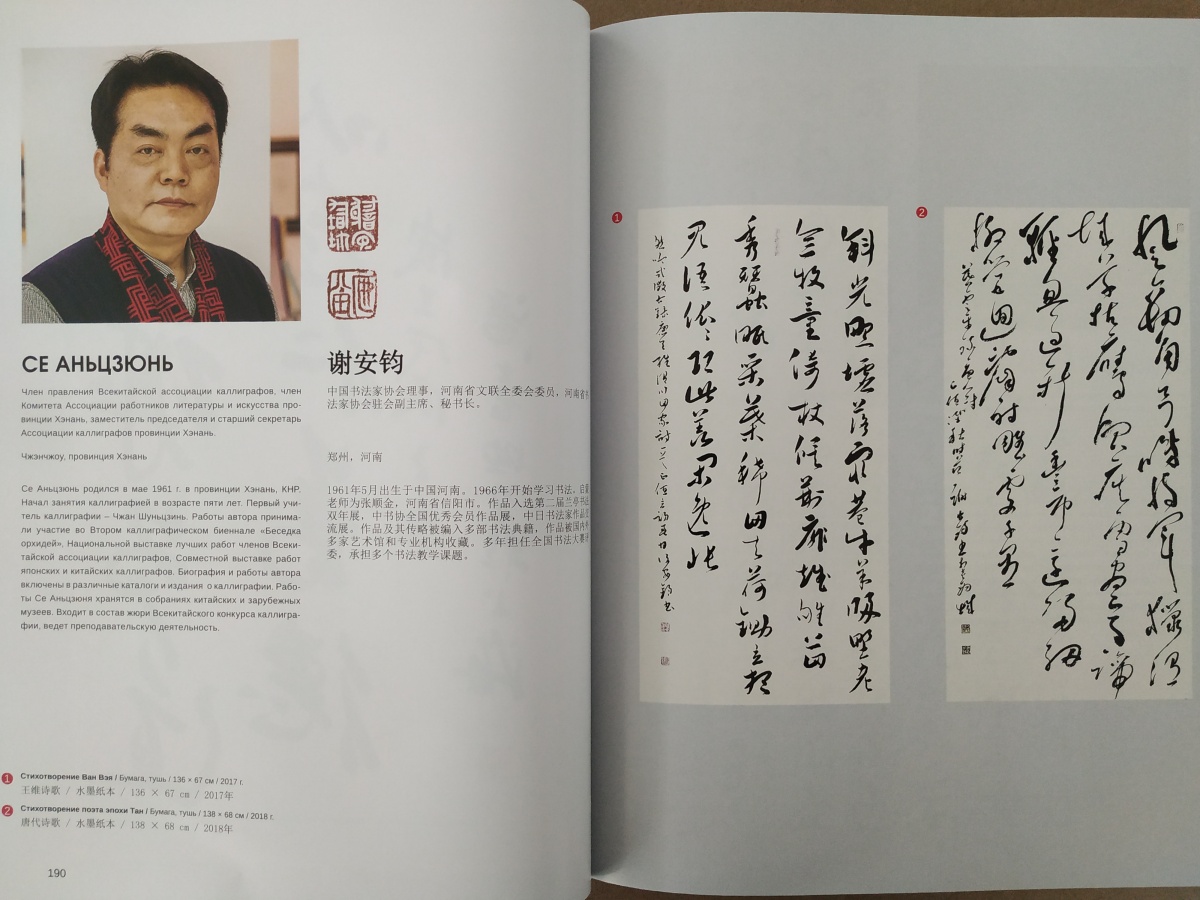 СЕ АНЬЦЗЮНЬ
Член правления Всекитайской ассоциации каллиграфов, член
Комитета Ассоциации работников литературы и искусства про-
винции Хэнань, заместитель председателя и старший секретарь
Ассоциации каллиграфов провинции Хэнань.
Чжэнчжоу, провинция Хэнань
Се Аньцзюнь родился в мае 1961 г. в провинции Хэнань, КНР.
Начал занятия каллиграфией в возрасте пяти лет. Первый учи-
тель каллиграфии – Чжан Шуньцзинь. Работы автора принима-
ли участие во Втором каллиграфическом биеннале «Беседка
орхидей», Национальной выставке лучших работ членов Всеки-
тайской ассоциации каллиграфов, Совместной выставке работ
японских и китайских каллиграфов. Биография и работы автора
включены в различные каталоги и издания о каллиграфии. Рабо-
ты Се Аньцзюня хранятся в собраниях китайских и зарубежных
музеев. Входит в состав жюри Всекитайского конкурса каллигра-
фии, ведет преподавательскую деятельность.
谢安钧
中国书法家协会理事，河南省文联全委会委员，河南省书
法家协会驻会副主席、秘书长。
郑州，河南
1961年5月出生于中国河南。1966年开始学习书法，启蒙
老师为张顺金，河南省信阳市。作品入选第二届兰亭书法
双年展，中书协全国优秀会员作品展，中日书法家作品交
流展。作品及其传略被编入多部书法典籍，作品被国内外
多家艺术馆和专业机构收藏。多年担任全国书法大赛评
委，承担多个书法教学课题。
1 Стихотворение Ван Вэя / Бумага, тушь / 136 × 67 см / 2017 г.
王维诗歌 / 水墨纸本 / 136 × 67 cm / 2017年
2 Стихотворение поэта эпохи Тан / Бумага, тушь / 138 × 68 см / 2018 г.
唐代诗歌 / 水墨纸本 / 138 × 68 cm / 2018年
190
1
斜光照墟落穷巷牛羊归野老
念牧童倚杖候荆扉雉雊苗
秀蚕眠桑葉稀田夫荷锄立相
见语依依即此羡闲逸怅
2
风劲角弓鸣将军猎渭
城草枯鹰眼疾雪尽马蹄
轻忽过新丰市还归细
柳营回看射雕处千里